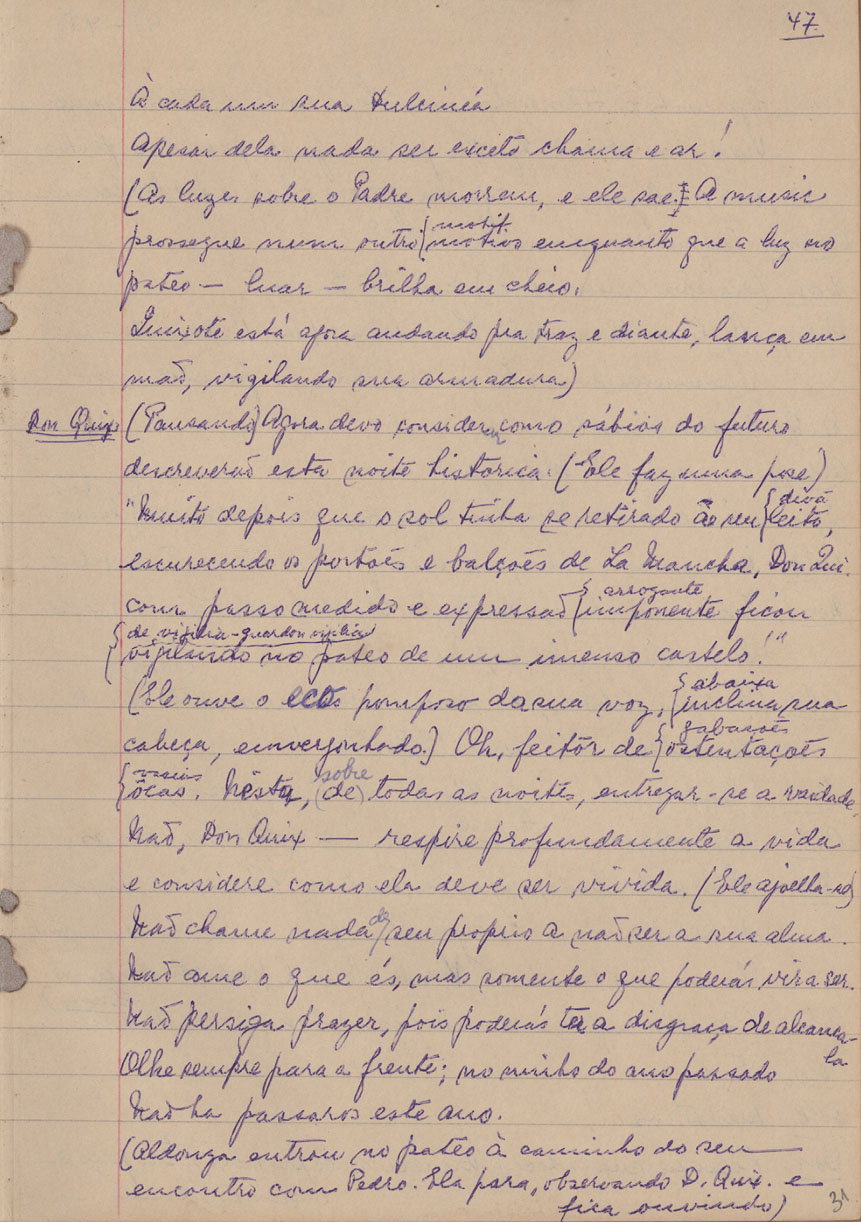 47.
À cada um sua Dulcinéa
Apesar dela nada ser exceto chama e ar!
(As luzes sobre o Padre morrem, e ele sae. A music
motif
prossegue num outro {motivo enquanto que a luz no
pateo — luar — brilha em cheio.
Quixote está agora andando pra traz e diante, lança em
maõ, vigilando sua armadura)
Don Quix (Pausando) Agora devo considerar como sábios do futuro
descreveraõ esta noite historica. (Ele faz uma pose)
{divã
"Muito depois que o sol tinha se retirado ao seu {leito,
escurecendo os portoẽs e balçoẽs de La Mancha, Don Qui.
{arrogante
com passo medido e expressaõ {imponente ficou
{de vigilia - guardou vigilia
{vigilando no pateo de um imenso castelo!"
{abaixa
(Ele ouve o eco pomposo da sua voz, {inclina sua
{gabaçoẽs
cabeça, envergonhado.) Oh, feitor de {ostentaçoẽs
{vasias sobre
{ôcas. Nesta, (de) todas as noites, entregar-se a vaidade.
Naõ, Don Quix — respire profundamente a vida
e considere como ela deve ser vivida. (Ele ajoelha-se)
Naõ chame nada de seu proprio a naõ ser a sua alma.
Naõ ame o que és, mas somente o que poderás vir a ser.
Naõ persiga prazer, pois poderás ter a disgraça de alcança-
la
Olhe sempre para a frente; no ninho do ano passado
Naõ ha passaros este ano.
(Aldonza entrou no pateo à caminho do seu
encontro com Pedro. Ela para, observando D. Quix. e
fica ouvindo)
31